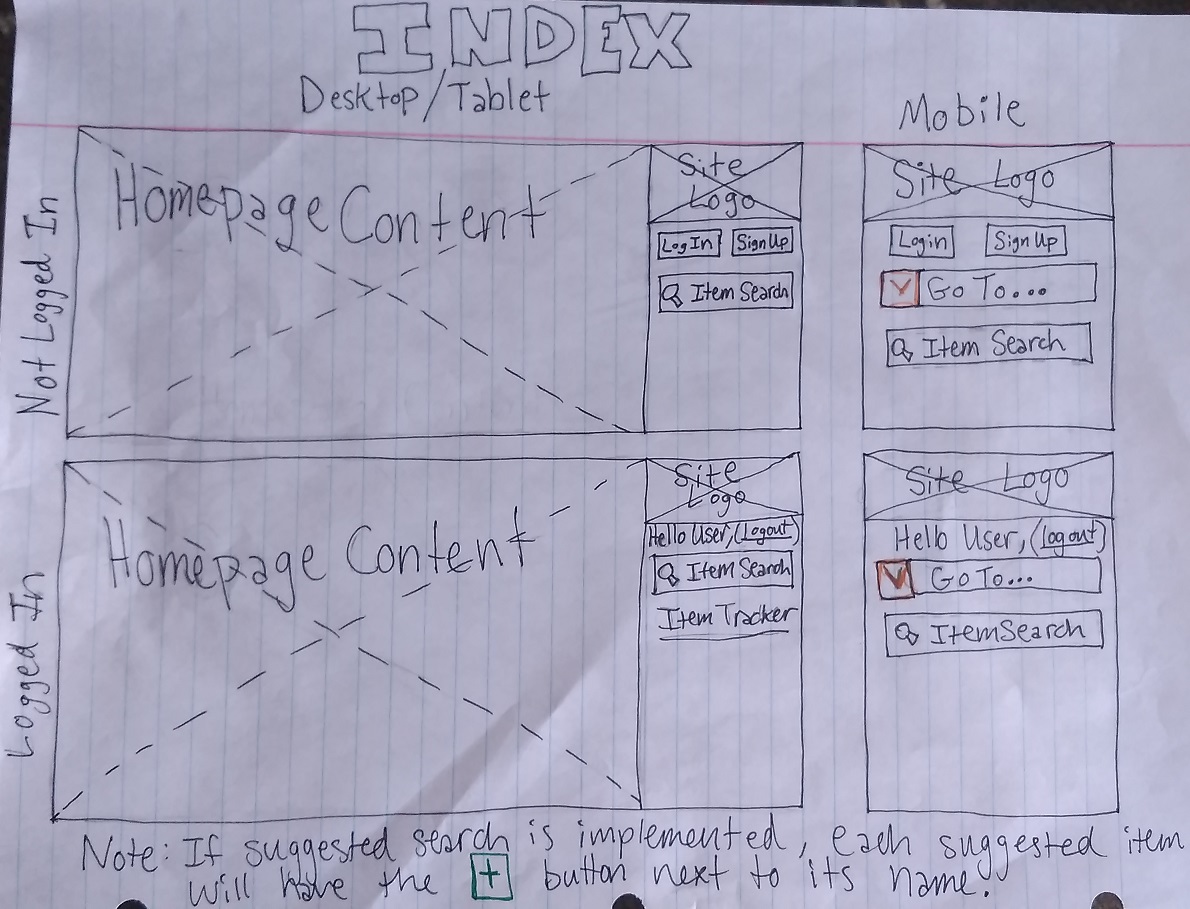 INDEX
Desktop/Tablet
Mobile
Not Logged In
Homepage Content
Site
Logo
Log In
Sign Up
Item Search
Site Logo
Login
Sign Up
Go To...
Item Search
Logged In
Homepage Content
Site
Logo
Hello User, (Logout)
Item Search
Item Tracker
Site Logo
Hello User, (Logout)
Go To...
Item Search
Note: If suggested search is implemented, each suggested item
will have the + button next to its name.